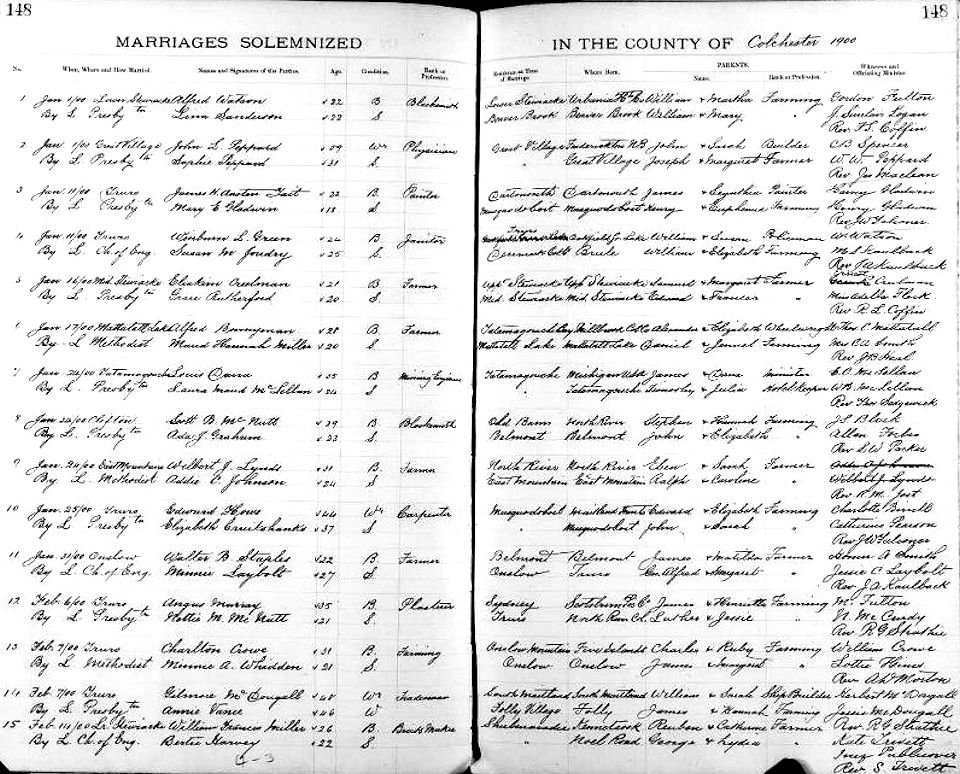 148
MARRIAGES SOLEMNIZED
No. When, Where and How Married. Names and Signatures of the Parties. Age. Condition. Rank or Profession.
1 Jan 1/00 Lower Stewiacke Alfred Watson 22 B Blacksmith
By L Presby tn Lena Sanderson 22 S
2 Jan 1/00 Great Village John L. Peppard 59 Wr Physician
By L. Presby tn Sophie Peppard 31 S
3 Jan 11/00 Truro James H. Austen Tait 22 B. Painter
By L. Presby tn Mary E Gladwin 18 S.
4 Jan 11/00 Truro L. Green 24 B Janitor
By L. Ch. of Eng. Susan M Joudry 25 S.
5 Jan 16/00 Mid. Stewiacke Eliakim Creelman 21 B Farmer
By L. Presby tn Grace Rutherford 20 S
6 Jan 17/00 Mattatall Lake Alfred Bonnyman 28 B Farmer
By L Methodist Maud Hannah Miller 20 S.
7 Jan 24/00 Tatamagouche Louis 35 B Mining Engineer
By L. Presby tn Laura Maud McLellan 24 S
8 Jan 24/00 Clifton Scott B. McNutt 29 B Blacksmith
By L. Presby tn Ada J. Graham 23 S.
9 Jan. 24/00 East Mountain Wilbert J. Lynds 31 B. Farmer
By L. Methodist Addie C Johnson 24 S
10 Jan. 25/00 Truro Edward Howe 44 Wr Carpenter
By L. Presby tn Elizabeth Cruikshanks 37 S
11 Jan 31/00 Onslow Walter B Staples 22 B. Farmer
By L. Ch. of Eng. Minnie Laybolt 27 S
12 Feb. 6/00 Truro Angus Murray 35 B. Plasterer
By L. Presby tn Hattie M. McNutt 21 S.
13 Feb. 7/00 Truro Charlton Crowe 31 B Farming
By L Methodist Minnie A. Whidden 21 S.
14 Feb. 7/00 Truro Gilmore McDougall 48 Wr Tradesman
By L. Presby tn Annie Vance 46 W
15 Feb. 14/00 Lr Stewiacke William Francis Miller 26 B Brick Maker
By L. Ch. of Eng. Bertie Harvey 22 S
148
IN THE COUNTY OF Colchester 1900
Residence at Time of Marriage. Where Born. PARENTS. Name. Rank or Profession. Witnesses and Officiating Minister.
Lower Stewiacke Urbania H. Co William & Martha Farming Gordon Fulton
Beaver Brook Beaver Brook William & Mary " J. Sinclair Logan
Rev. F.S. Coffin
Great Village Fredericton N.B John & Sarah Builder CB Spencer
" Great Village Joseph & Margaret Farmer W. W. Peppard
Rev Jas Maclean
Dartmouth Dartmouth James & Painter Gladwin
Musquodoboit Musquodoboit Henry & Euphemia Farming Henry Gladwin
Rev W Falconer
Truro
Oakfield Gr. Lake William & Susan Policeman W. Watson
Brule William & Elizabeth Farming M S Kaulback
Rev J A Kaulback
Upp Stewiacke Upp Stewiacke Samuel & Margaret Farmer Creelman
Mid. Stewiacke Mid. Stewiacke Edward & Frances " Miss Adella Fleck
Rev. F. L Coffin
Tatamagouche Bay Millbrook Col Co Alexander & Elizabeth Wheelwright C Mattatall
Mattatall Lake Mattatall Lake Daniel & Farming Mrs C A Smith
Rev J B Heal
Tatamagouche Michigan USA James & Jane Minister E.O. McLellan
" Tatamagouche Timothy & Julia Hotel Keeper W B McLellan
Rev Thos Sedgewick
Old Barns North River Stephen & Hannah Farming J S Black
Belmont Belmont John & Elizabeth " Allan Forbes
Rev L W Parker
North River North River Eben & Sarah Farmer
East Mountain East Mountain Ralph & Caroline " Wilbert J. Lynds
Rev R. M. Jost
Musquodoboit Maitland Hants Edward & Elizabeth Farming Charlotte Birrell
" Musquodoboit John & Sarah " Catherine Pearson
Rev J W Falconer
Belmont Belmont James & Matilda Farmer A Smith
Onslow Truro Geo. Alfred & Margaret " Jessie C Laybolt
Rev. J A Kaulback
Sydney Scotsburn P. Co James & Henrietta Farming M. Fulton
Truro North River Col. Luther & Jessie " N. McCurdy
Rev R G Strathie
Onslow Mountain Five Islands Charles & Ruby Farming William Crowe
Onslow Onslow James & Margaret " Lottie Hines
Rev. Ad. Morton
South Maitland South Maitland William & Sarah Ship Builder Herbert McDougall
Folly Village Folly James & Hannah Farming Jessie McDougall
Rev R G Strathie
Shubenacadie Kennetcook Reuben & Catherine Farmer Kate Trevett
" Noel Road George & Lydia " Inez Publicover
Rev S. Trevett